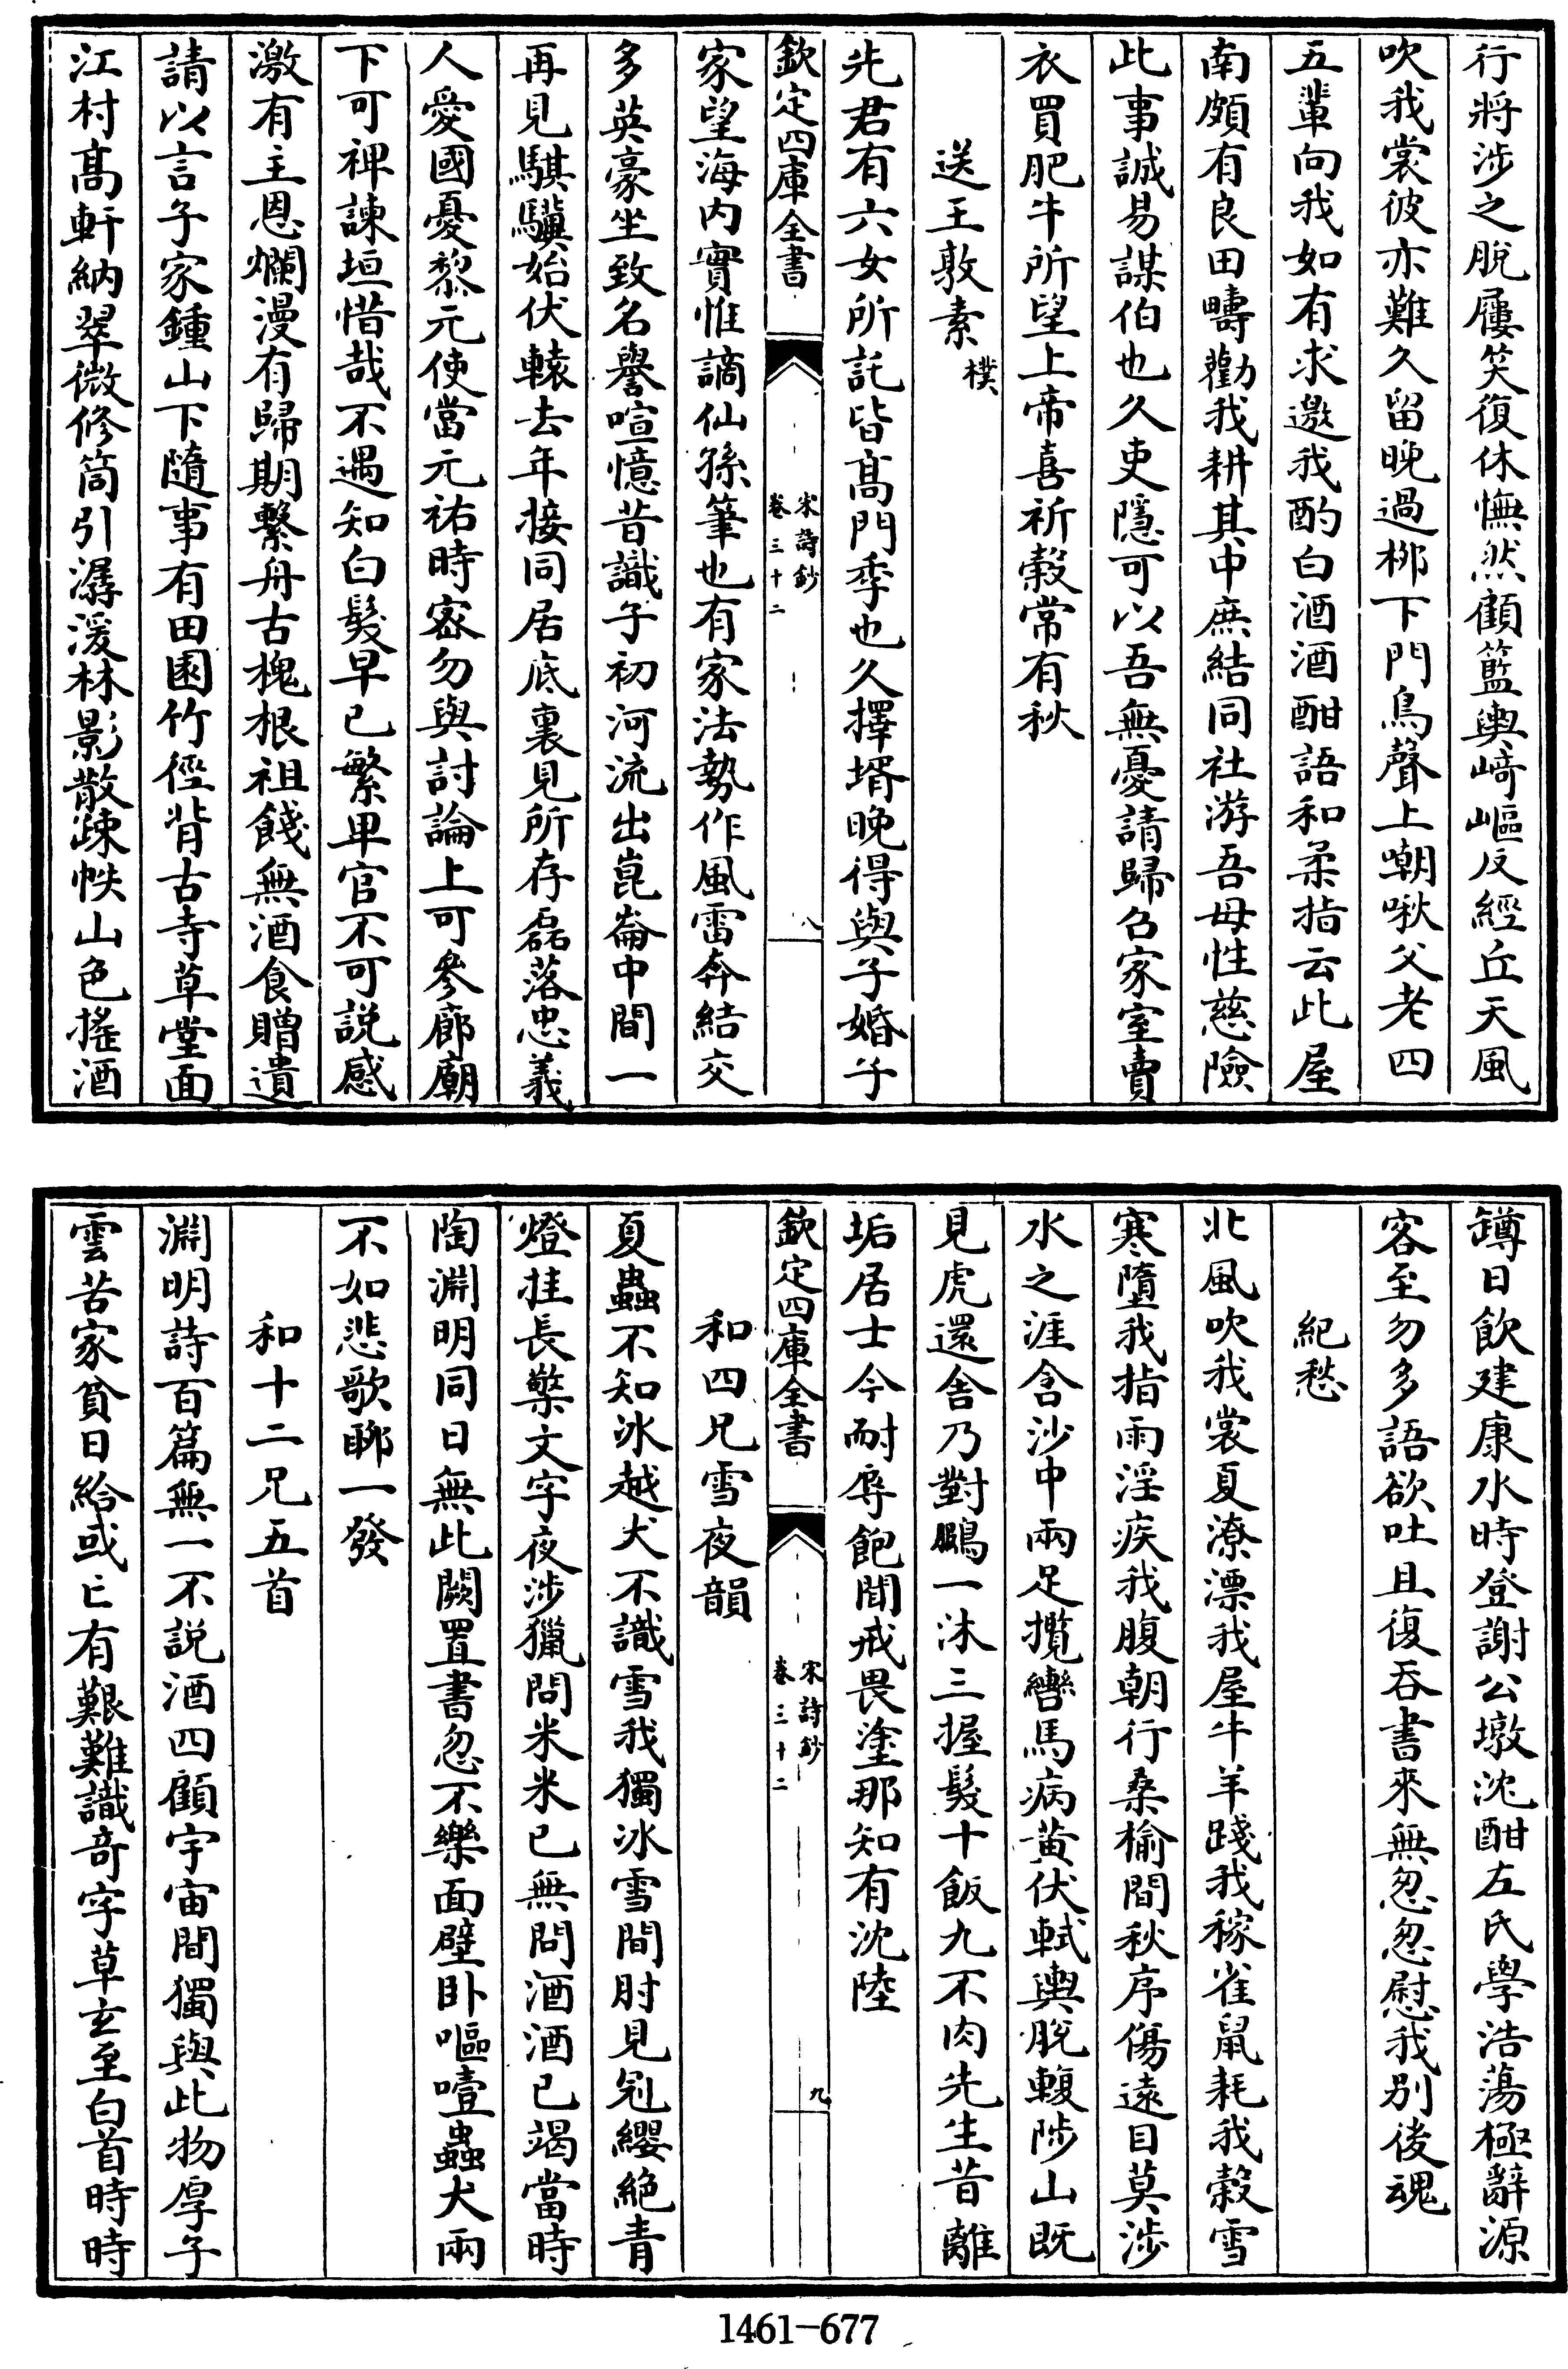 行將涉之脫屨笑復休憮然顧籃輿﨑嶇反經丘天風
吹我裳彼亦難久留晚過栁下門鳥聲上嘲啾父老四
五輩向我如有求邀我酌白酒酒酣語和柔指云此屋
南頗有良田疇勸我耕其中庶結同社游吾母性慈險
此事誠易謀伯也久吏隱可以吾無憂請歸名家室賣
衣買肥牛所望上帝喜祈穀常有秋
送王敦素樸
先君有六女所託皆髙門季也久擇壻晚得與子婚子
欽定四庫全書
宋詩鈔
卷三十二
八
家望海内實惟謫仙孫筆也有家法勢作風雷奔結交
多英豪坐致名譽喧憶昔識子初河流出崑崙中間一
再見騏驥始伏轅去年接同居底裏見所存磊落忠義
人愛國憂黎元使當元祐時密勿與討論上可參廊廟
下可裨諫垣惜哉不遇知白髮早已繁卑官不可説感
激有主恩爛漫有歸期繫舟古槐根祖餞無酒食贈遺
請以言子家鍾山下隨事有田園竹徑背古寺草堂面
江村髙軒納翠微修筒引潺湲林影散疎帙山色搖酒
罇日飲建康水時登謝公墩沈酣左氏學浩蕩極辭源
客至勿多語欲吐且復吞書來無怱怱慰我别後魂
紀愁
北風吹我裳夏潦漂我屋牛羊踐我稼雀鼠耗我穀雪
寒墮我指雨淫疾我腹朝行桑榆間秋序傷遠目莫涉
水之涯含沙中兩足攬轡馬病黄伏軾輿脫輹陟山既
見虎還舍乃對鵩一沐三握髮十飯九不肉先生昔離
垢居士今耐辱飽聞戒畏塗那知有沈陸
欽定四庫全書
宋詩鈔
卷三十二
九
和四兄雪夜韻
夏蟲不知冰越犬不識雪我獨冰雪間肘見冠纓絶青
燈挂長檠文字夜涉獵問米米已無問酒酒已竭當時
陶淵明同日無此闕置書忽不樂面壁卧嘔噎蟲犬兩
不如悲歌聊一發
和十二兄五首
淵明詩百篇無一不説酒四顧宇宙間獨與此物厚子
雲苦家貧日給或亡有艱難識奇字草玄至白首時時
1461-677